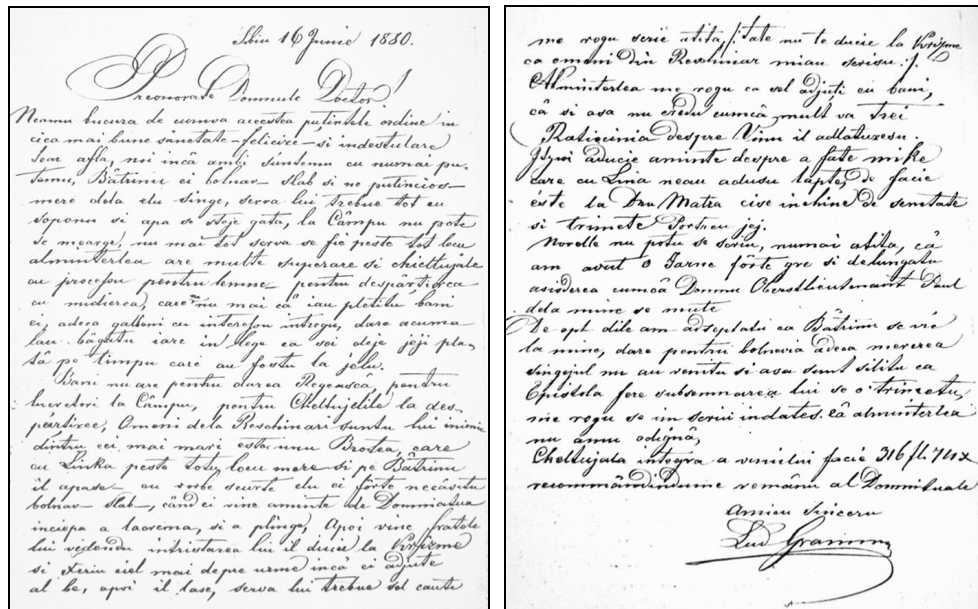 Sbiu 16 Junie 1880.
Preonorate Domnule Doctor!
Neamu bucura de cumva acestea putintele ordine in
cica mai bune sanatate - felicire - si indestulare
Seor afla, noi inca ambi suntemu cu numai pu-
temu, Bătrinu ei bolnav - slab si ne putincios -
mere dela elu singe, serva lui trebue tot cu
soponu si apa se steje gata, la Câmpu nu pote
se mearge, nu mai tot serva se fie peste tot locu
almintertea are multe superare si chieltujale
cu procesou pentru lemne - pentru despartirea
cu midierea, care nu mai că iau pletitu bani
ei, adeca galbeni cu interesou intregu, dare acuma
lau băgatu iare in lege ca sei deje jeji pla-
tă pe timpu care au fostu la jelu.
Bani nu are pentru darea Regeasca, pentru
lucretori la Câmpu, pentru Cheltujelile la des-
părtiree, Omeni dela Reschinari suntu lui inimic
dintru cei mai mari este unu Brotea, care
cu Linka peste totu locu mere si pe Bătrinu
il apase - cu vorbe scurte elu ei förte necăsitu
bolnav - slab -, când ei vine aminte de Domniatua
inciepa a lacrima, si a plinge, Apoi vine fratele
lui vedendu intristarea lui il duce la Krizme
si ciel mai depre urme incă ei adjute
al be, apoi il lase, serva lui trebue sel caute
me rogu scrie atita, /: Tate nu te ducie la Krizme
ca omeni din Resinnar miau scrisu :/.
Almintertea me rogu ca sel adjuti cu bani,
că si asa nu credu cumcă mult va trei
Ratiocinia despre Vinu il adlaturezu.
aducie aminte despre a fate mike
care cu Lina neau adusu lapte, de facie
este la Dnu Matea cise inchine de senetate
si trimete
Novelle nu potu se scriu, numai atita, că
am avut o Jarne förte gre si delungatu
asisderea cumcă Domnu Oberstlieutenant Paul
dela mine se mute
De opt dile am adseptatu ca Bătrinu se vie
la mine, dare pentru bolnavia adeca mererea
singejul nu au venitu si asa sunt silitu ca
Epistola fere subsemnarea lui se o trimetu,
me rogu se im scrii indates. că almintertea
nu amu odignă,
Cheltujala integra a vinului facie 316 fl. 74 x
recommăndindume românu al Domnitale
Amicu Sinceru
Lud Gramm